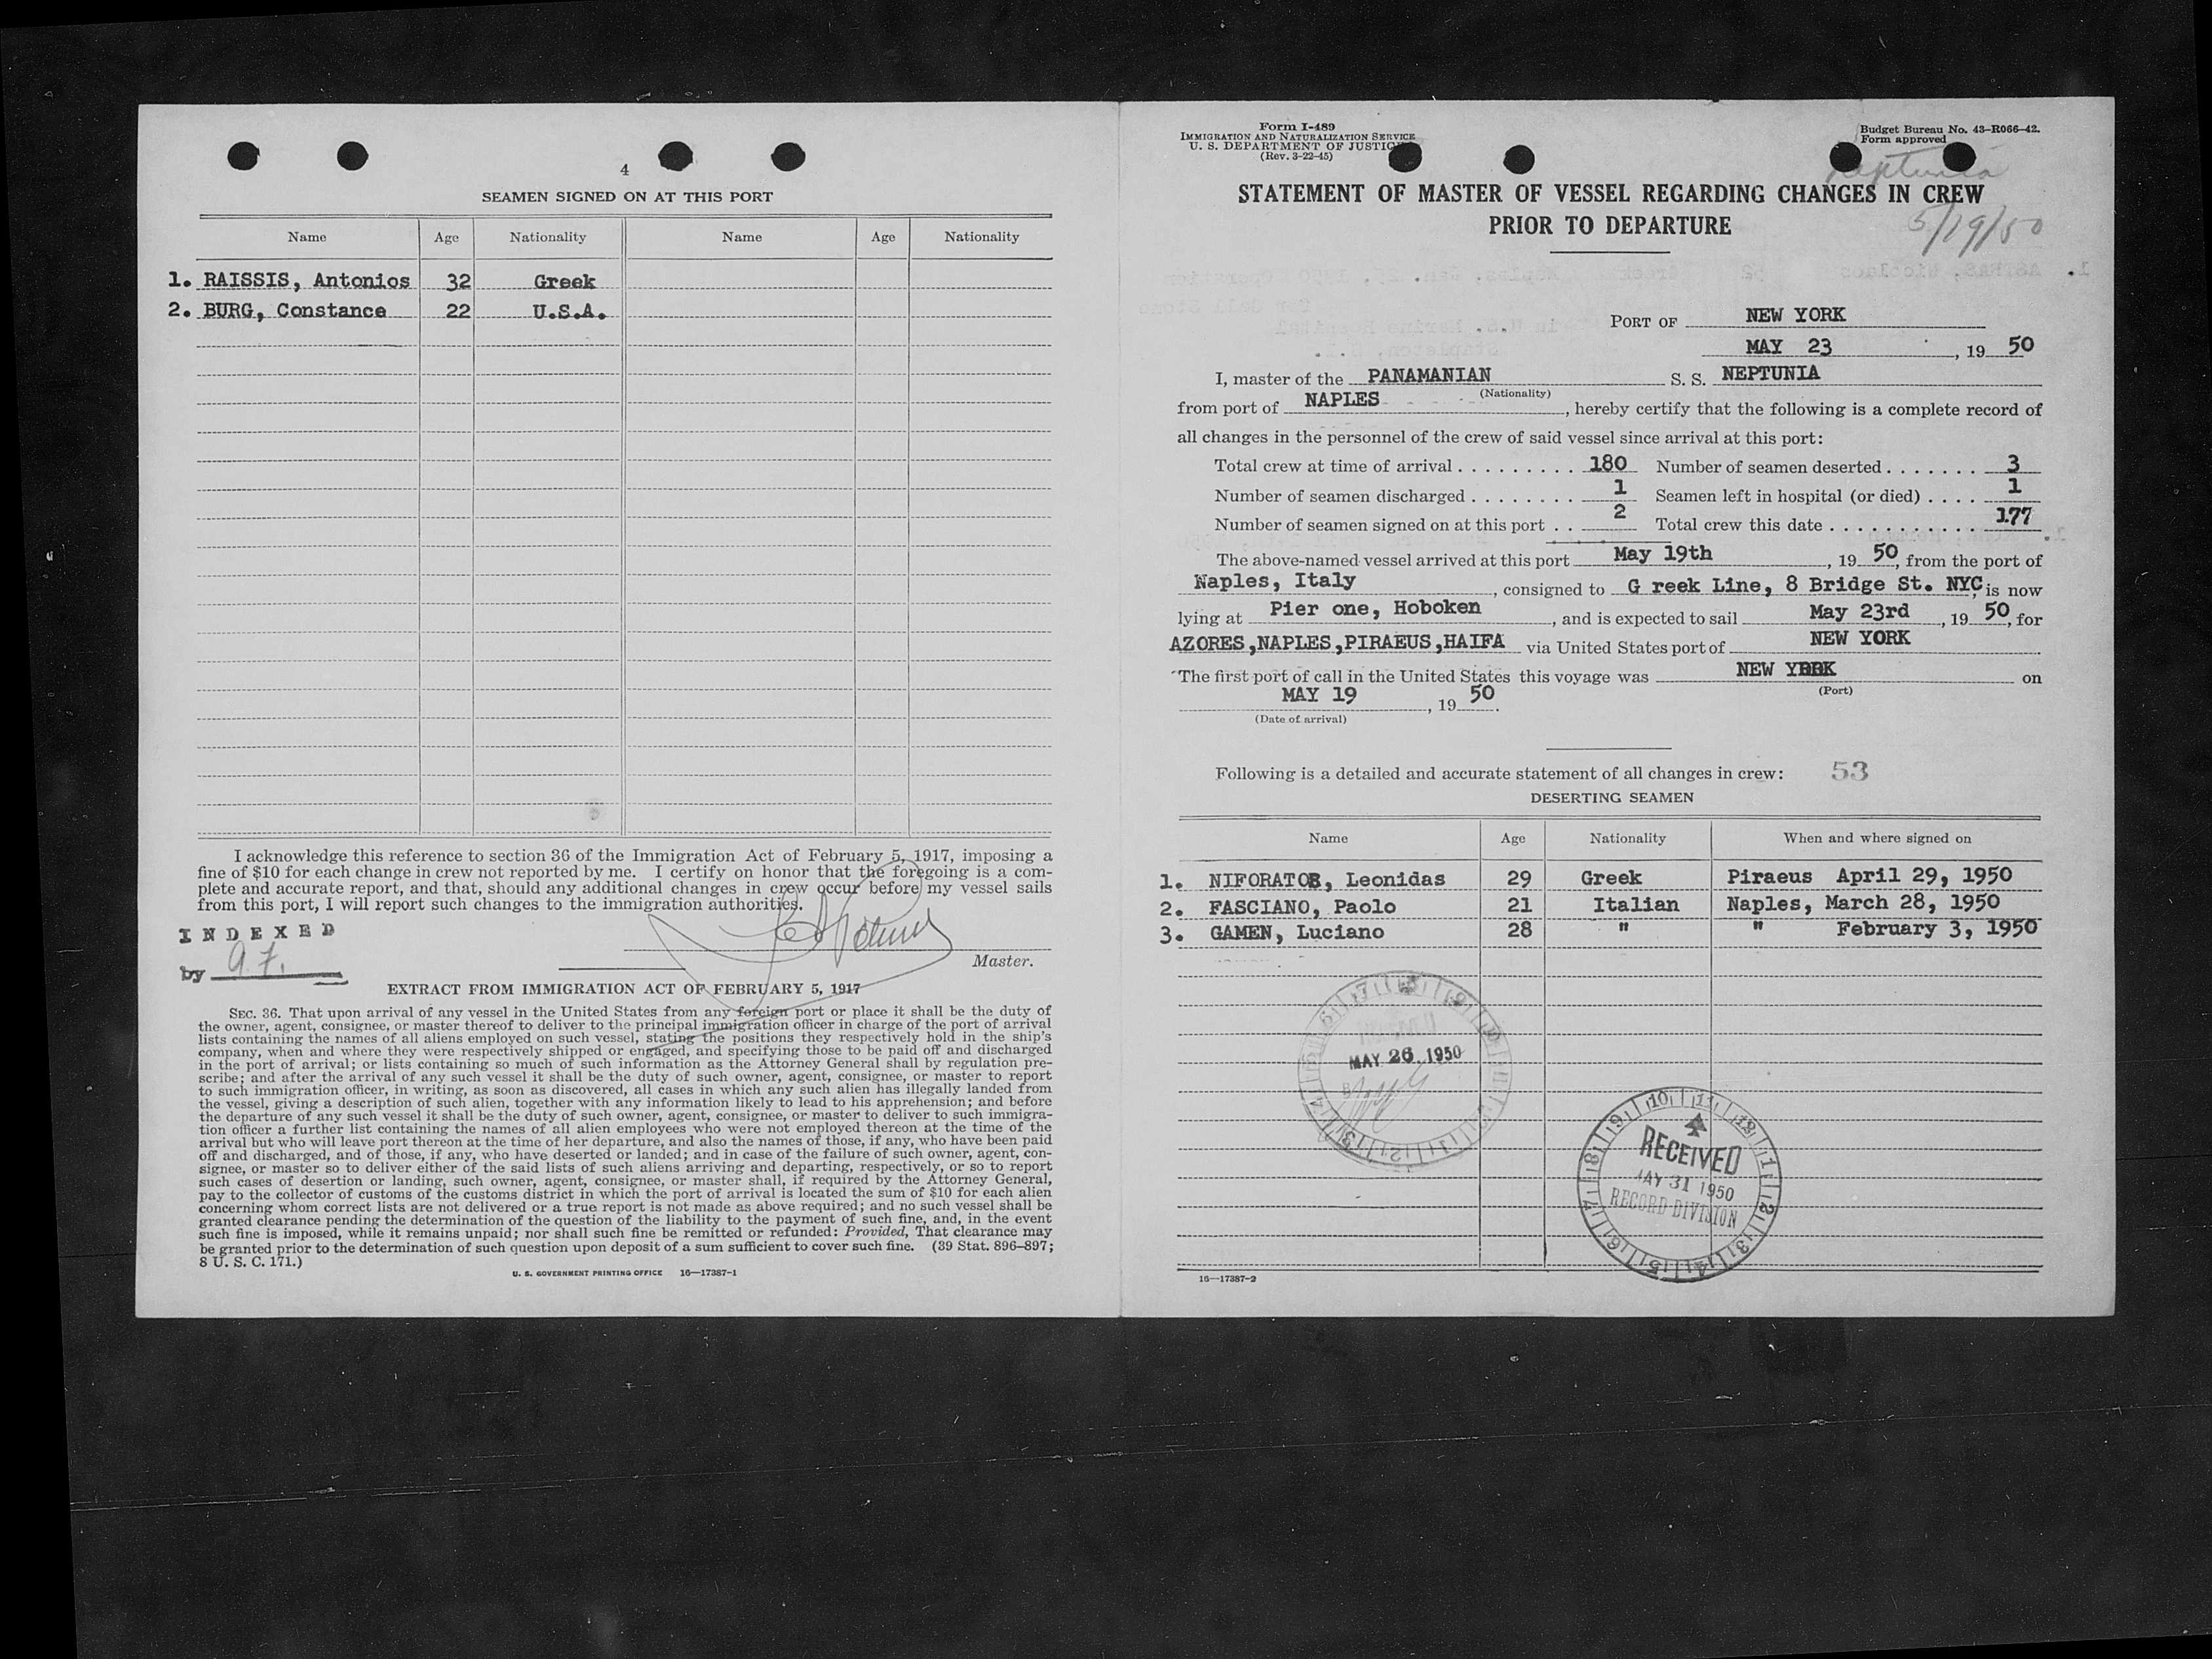 4
SEAMEN SIGNED ON AT THIS PORT
Name Age Nationality Name Age Nationality
1. RAISSIS, Antonios 32 Greek
2. BURG, Constance 22 U.S.A.
I acknowledge this reference to section 36 of the Immigration Act of February 5, 1917, imposing a
fine of $10 for each change in crew not reported by me. I certify on honor that the foregoing is a com-
plete and accurate report, and that, should any additional changes in crew occur before my vessel sails
from this port, I will report such changes to the immigration authorities.
INDEXED
by
Master.
EXTRACT FROM IMMIGRATION ACT OF FEBRUARY 5, 1917
SEC. 36. That upon arrival of any vessel in the United States from any foreign port or place it shall be the duty of
the owner, agent, consignee, or master thereof to deliver to the principal immigration officer in charge of the port of arrival
lists containing the names of all aliens employed on such vessel, stating the positions they respectively hold in the ship's
company, when and where they were respectively shipped or engaged, and specifying those to be paid off and discharged
in the port of arrival; or lists containing so much of such information as the Attorney General shall by regulation pre-
scribe; and after the arrival of any such vessel it shall be the duty of such owner, agent, consignee, or master to report
to such immigration officer, in writing, as soon as discovered, all cases in which any such alien has illegally landed from
the vessel, giving a description of such alien, together with any information likely to lead to his apprehension; and before
the departure of any such vessel it shall be the duty of such owner, agent, consignee, or master to deliver to such immigra-
tion officer a further list containing the names of all alien employees who were not employed thereon at the time of the
arrival but who will leave port thereon at the time of her departure, and also the names of those, if any, who have been paid
off and discharged, and of those, if any, who have deserted or landed; and in case of the failure of such owner, agent, con-
signee, or master so to deliver either of the said lists of such aliens arriving and departing, respectively, or so to report
such cases of desertion or landing, such owner, agent, consignee, or master shall, if required by the Attorney General,
pay to the collector of customs of the customs district in which the port of arrival is located the sum of $10 for each alien
concerning whom correct lists are not delivered or a true report is not made as above required; and no such vessel shall be
granted clearance pending the determination of the question of the liability to the payment of such fine, and, in the event
such fine is imposed, while it remains unpaid; nor shall such fine be remitted or refunded: Provided, That clearance may
be granted prior to the determination of such question upon deposit of a sum sufficient to cover such fine. (39 Stat. 896–897;
8 U. S. C. 171.)
U. S. GOVERNMENT PRINTING OFFICE 16—17387-1
Form I-489
IMMIGRATION AND NATURALIZATION SERVICE
U. S. DEPARTMENT OF JUSTICE
(Rev. 3-22-45)
Budget Bureau No. 43-R066-42.
Form approved
Neptunia
5/19/50
STATEMENT OF MASTER OF VESSEL REGARDING CHANGES IN CREW
PRIOR TO DEPARTURE
PORT OF NEW YORK
MAY 23, 19 50
I, master of the PANAMANIAN S. S. NEPTUNIA
(Nationality)
from port of NAPLES, hereby certify that the following is a complete record of
all changes in the personnel of the crew of said vessel since arrival at this port:
Total crew at time of arrival . . . . . . . . . . 180 Number of seamen deserted . . . . . . . 3
Number of seamen discharged . . . . . . . . 1 Seamen left in hospital (or died) . . . . 1
Number of seamen signed on at this port . . 2 Total crew this date . . . . . . . . . . . . 177
The above-named vessel arrived at this port May 19th, 19 50, from the port of
Naples, Italy, consigned to G reek Line, 8 Bridge St. NYC, is now
lying at Pier one, Hoboken, and is expected to sail May 23rd, 19 50, for
AZORES,NAPLES,PIRAEUS,HAIFA via United States port of NEW YORK
The first port of call in the United States this voyage was NEW YORK on
(Port)
MAY 19, 19 50.
(Date of arrival)
Following is a detailed and accurate statement of all changes in crew: 53
DESERTING SEAMEN
Name Age Nationality When and where signed on
1. NIFORATOS, Leonidas 29 Greek Piraeus April 29, 1950
2. FASCIANO, Paolo 21 Italian Naples, March 28, 1950
3. GAMEN, Luciano 28 " " February 3, 1950
MAY 26 1950
RECEIVED
MAY 31 1950
RECORD DIVISION
16—17387-2